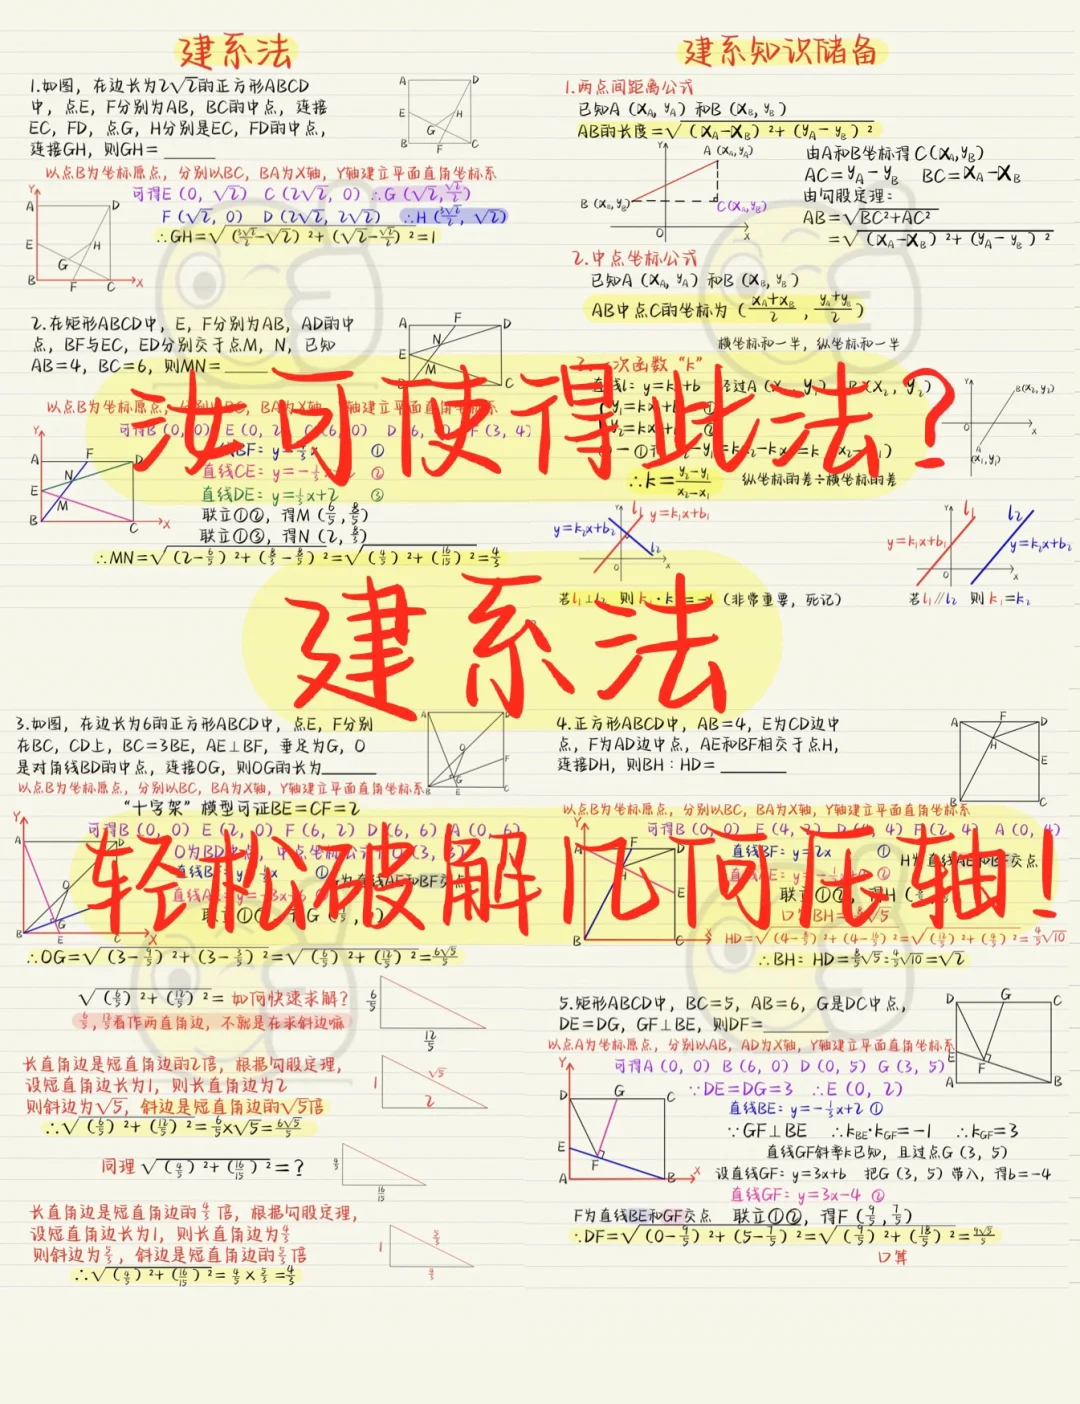 建系法
1.如图，在边长为2√2的正方形ABCD
中，点E，F分别为AB，BC的中点，连接
EC，FD，点G，H分别是EC，FD的中点，
连接GH，则GH=______
以点B为坐标原点，分别以BC，BA为X轴，Y轴建立平面直角坐标系
可得E（0，√2） C（2√2，0）∴G（√2，√2/2）
F（√2，0） D（2√2，2√2） ∴H（3√2/2，√2）
∴GH=√(3√2/2-√2)²+(√2-√2/2)²=1
2.在矩形ABCD中，E，F分别为AB，AD的中
点，BF与EC，ED分别交于点M，N，已知
AB=4，BC=6，则MN=______
汝可使得此法？
直线CE：y=-
直线DE：y=1/3x+2 ③
联立①②，得M（6/5，8/5）
联立①③，得N（2，8/3）
∴MN=√(2-6/5)²+(8/3-8/5)²=√(4/5)²+(16/15)²=4/3
建系知识储备
1.两点间距离公式
已知A（XA，yA）和B（XB，yB）
AB的长度=√(XA-XB)²+(yA-yB)²
由A和B坐标得C（XA，yB）
AC=yA-yB BC=XA-XB
由勾股定理：
AB=√BC²+AC²
=√(XA-XB)²+(yA-yB)²
2.中点坐标公式
已知A（XA，yA）和B（XB，yB）
AB中点C的坐标为（xA+xB/2，yA+yB/2）
横坐标和一半，纵坐标和一半
∴k=y₂-y₁/x₂-x₁ 纵坐标的差÷横坐标的差
y=k₂x+b₂ l₁ y=k₁x+b₁ l₂
y=k₁x+b₁ l₁ l₂ y=k₂x+b₂
若l₁⊥l₂ 则k₁·k₂=-1（非常重要，死记） 若l₁∥l₂ 则k₁=k₂
建系法
3.如图，在边长为6的正方形ABCD中，点E，F分别
在BC，CD上，BC=3BE，AE⊥BF，垂足为G，O
是对角线BD的中点，连接OG，则OG的长为______
以点B为坐标原点，分别以BC，BA为X轴，Y轴建立平面直角坐标系
“十字架”模型可证BE=CF=2
可得B（0，0） E（2，0） F（6，2） D（6，6） A（0，6）
轻松破解几何压轴！
∴OG=√(3-9/5)²+(3-3/5)²=√(6/5)²+(12/5)²=6√5/5
√(6/5)²+(12/5)²=如何快速求解？
6/5，12/5看作两直角边，不就是在求斜边嘛
长直角边是短直角边的2倍，根据勾股定理，
设短直角边长为1，则长直角边为2
则斜边为√5，斜边是短直角边的√5倍
∴√(6/5)²+(12/5)²=6/5×√5=6√5/5
同理√(4/5)²+(16/15)²=？
长直角边是短直角边的4/3倍，根据勾股定理，
设短直角边长为1，则长直角边为4/3
则斜边为5/3，斜边是短直角边的5/3倍
∴√(4/5)²+(16/15)²=4/5×5/3=4/3
4.正方形ABCD中，AB=4，E为CD边中
点，F为AD边中点，AE和BF相交于点H，
连接DH，则BH：HD=______
以点B为坐标原点，分别以BC，BA为X轴，Y轴建立平面直角坐标系
可得B（0，0） E（4，2） D（4，4） F（2，4） A（0，4）
直线BF：y=2x ①
HD=√(4-8/5)²+(4-16/5)²=√(12/5)²+(4/5)²=4/5√10
∴BH：HD=8/5√5：4/5√10=√2
5.矩形ABCD中，BC=5，AB=6，G是DC中点，
DE=DG，GF⊥BE，则DF=______
以点A为坐标原点，分别以AB，AD为X轴，Y轴建立平面直角坐标系
可得A（0，0） B（6，0） D（0，5） G（3，5）
∵DE=DG=3 ∴E（0，2）
直线BE：y=-1/3x+2 ①
∵GF⊥BE ∴kBE·kGF=-1 ∴kGF=3
直线GF斜率k已知，且过点G（3，5）
设直线GF：y=3x+b 把G（3，5）带入，得b=-4
直线GF：y=3x-4 ②
F为直线BE和GF交点 联立①②，得F（9/5，7/5）
∴DF=√(0-9/5)²+(5-7/5)²=√(9/5)²+(18/5)²=9√5/5
口算